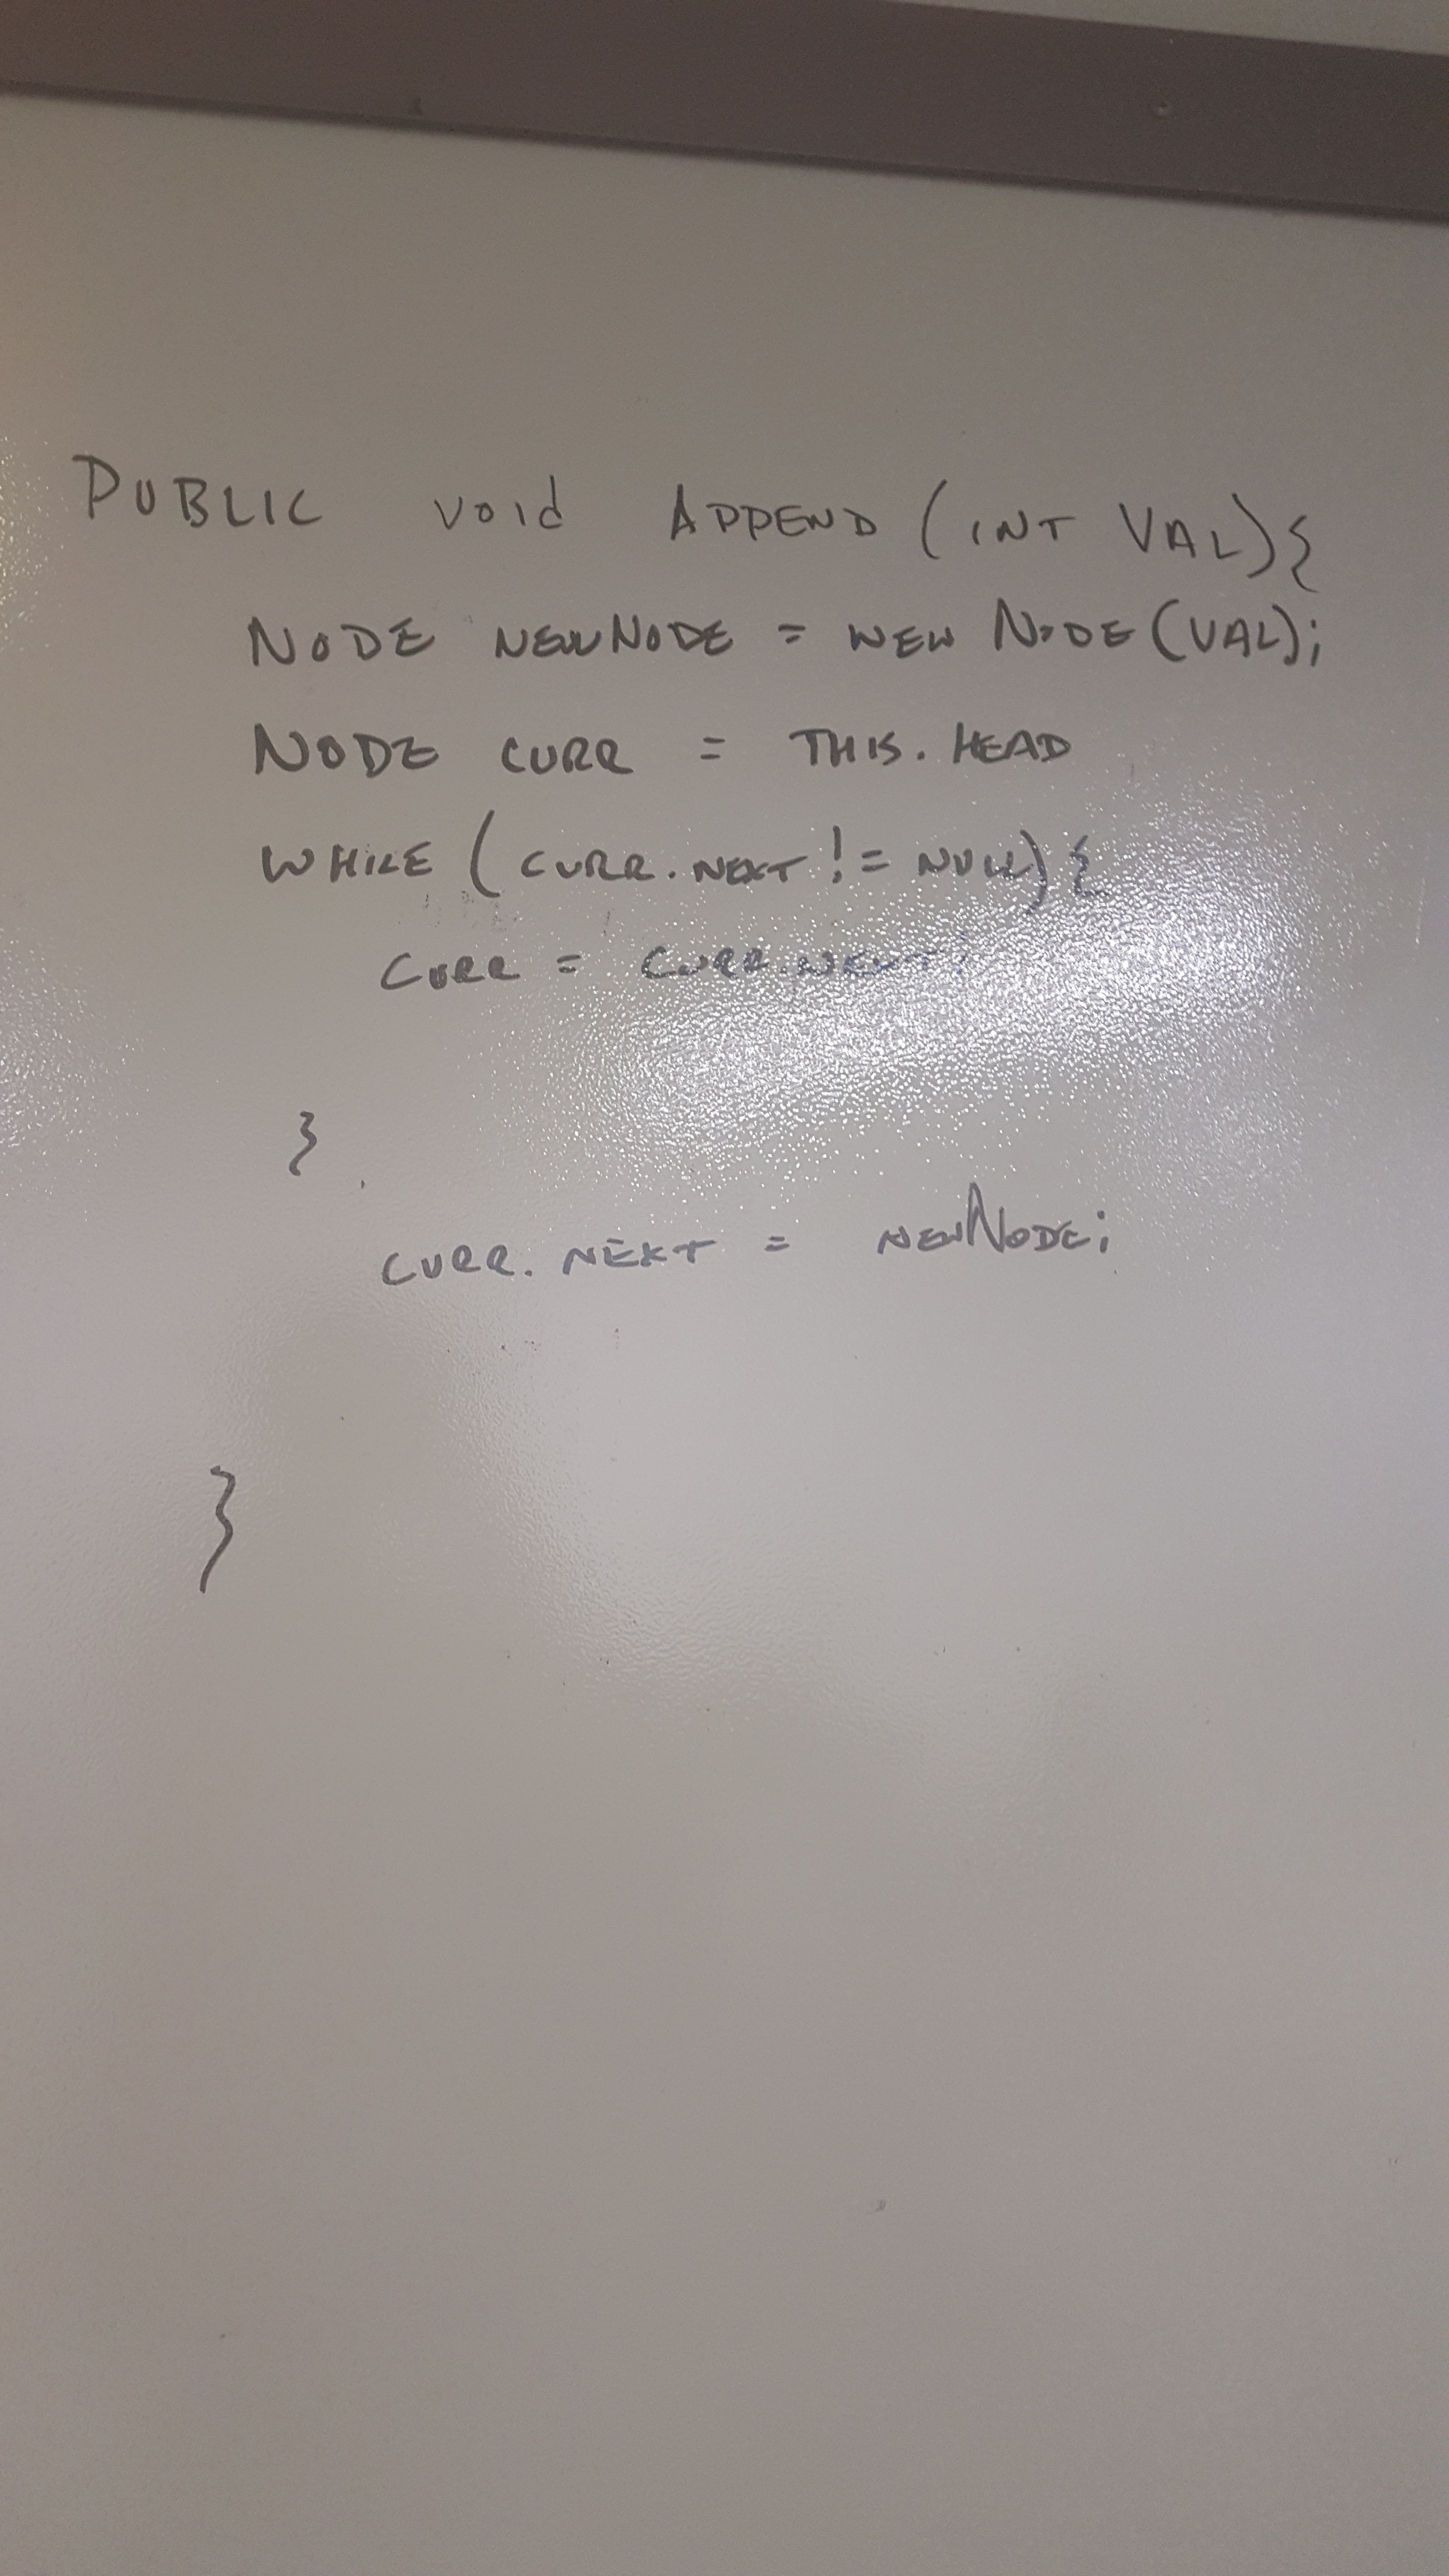 PUBLIC void APPEND (INT VAL){
NODE NEWNODE = NEW NODE(VAL);
NODE CURR = THIS.HEAD
WHILE (CURR.NEXT != NULL){
CURR = CURR.NEXT;
}
CURR.NEXT = NEWNODE;
}